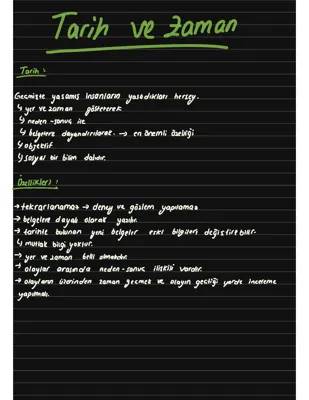 Tarih ve Zaman
Tarih :
Geçmişte yaşamış insanların yaşadıkları herşey.
↳ yer ve zaman göstererek
↳ neden-sonuç ile
↳ belgelere dayandırılarak. → en önemli özelliği
↳ objektif
↳ sosyal bir bilim dalıdır.
Özellikleri :
→ tekrarlanamaz → deney ve gözlem yapılamaz
→ belgelere dayalı olarak yazılır.
→ tarihte bulunan yeni belgeler eski bilgileri değiştirebilir.
↳ mutlak bilgi yoktur.
→ yer ve zaman belli olmalıdır.
→ olaylar arasında neden-sonuç ilişkisi vardır.
→ olayların üzerinden zaman geçmek ve olayın geçtiği yerde inceleme
yapılmalı.